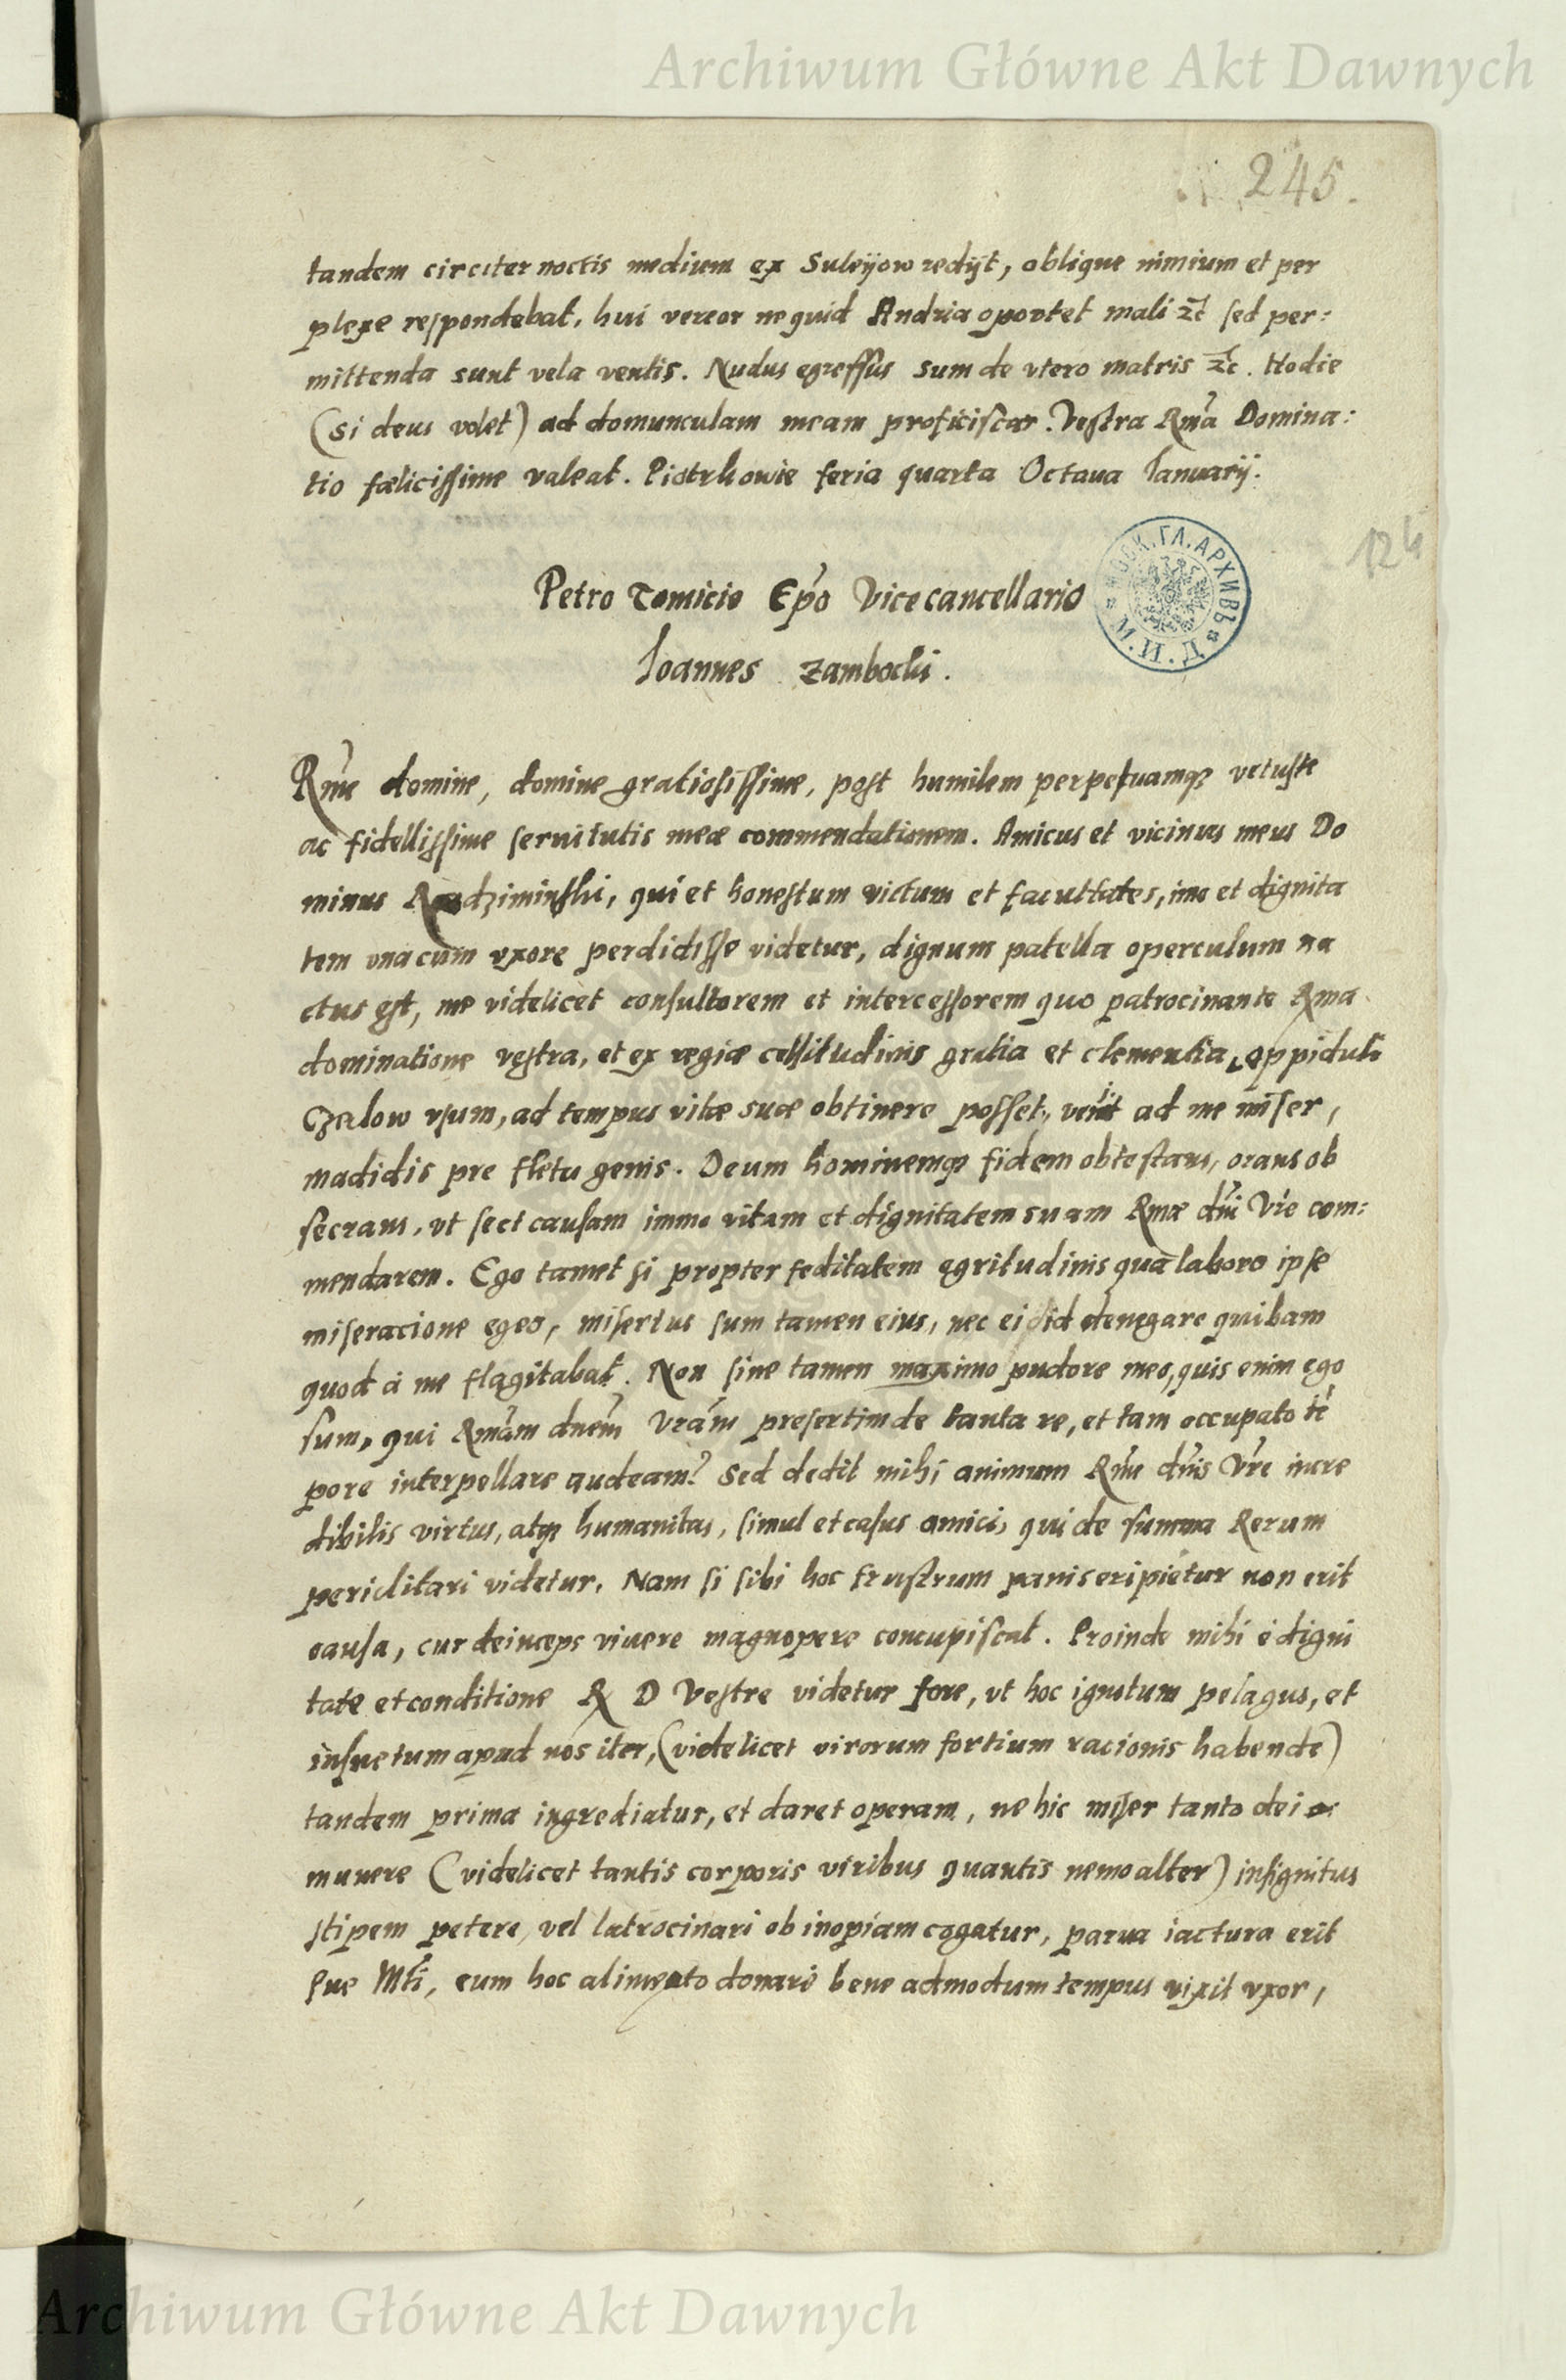 Archiwum Główne Akt Dawnych
245.
tandem circiter noctis medium ex Suleyow redijt, oblique nimium et per
plexe respondebat, hui vereor ne quid Andria oportet mali etc sed per:
mittenda sunt vela ventis. Nudus egressus sum de vtero matris etc. Hodie
(si deus volet) ad domunculam meam proficiscar. Vestra Rma Domina:
tio fælicissime valeat. Piotrkowie feria quarta Octaua Ianuarij.
124
МОСК. ГЛ. АРХИВЪ М.И.Д.
Petro Tomicio Epo Vicecancellario
Ioannes Zambocki.
Rme domine, domine gratiosissime, post humilem perpetuamq vetuste
ac fidelissime seruitutis meæ commendationem. Amicus et vicinus meus Do
minus Radziminski, qui et honestum victum et facultates, imo et dignita
tem vnacum vxore perdidisse videtur, dignum patella operculum na
ctus est, me videlicet consultorem et intercessorem quo patrocinante Rma
dominatione vestra, et ex regiæ celsitudinis gratia et clementia, oppiduli
vsum, ad tempus vitæ suæ obtinere posset, venit ad me miser,
madidis pre fletu genis. Deum hominemq fidem obtestans, orans ob
secrans, vt se et causam immo vitam et dignitatem suam Rmæ dni Vre com:
mendarem. Ego tamet si propter feditatem egritudinis qua laboro ipse
miseracione egeo, misertus sum tamen eius, nec ei id denegare quibam
quod à me flagitabat. Non sine tamen maximo pudore meo, quis enim ego
sum, qui Rmam dnem Vram presertim de tanta re, et tam occupato te
pore interpellare audeam? Sed dedit mihi animum Rme dnis Vre incre
dibilis virtus, atq humanitas, simul et casus amici, qui de summa Rerum
periclitari videtur. Nam si sibi hoc frustrum panis eripietur non erit
causa, cur deinceps viuere magnopere concupiscat. Proinde mihi è digni
tate et conditione R D Vestre videtur fore, vt hoc ignotum pelagus, et
insuetum apud nos iter, (videlicet virorum fortium racionis habende)
tandem prima ingrediatur, et daret operam, ne hic miser tanto dei
munere (videlicet tantis corporis viribus quantis nemo alter) insignitus
stipem petere, vel latrocinari ob inopiam cogatur, parua iactura erit
sue Mti, eum hoc alimento donari bene admodum tempus vixit vxor,
Archiwum Główne Akt Dawnych